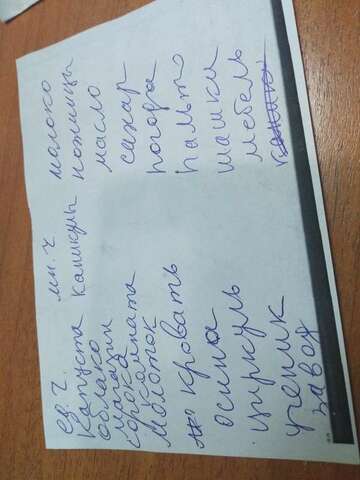 ед. ч.
капуста
облако
магазин
сорока
комната
молоток
кровать
осина
циркуль
ученик
завод
мн. ч.
каникулы
молоко
ножницы
масло
сахар
погода
пальто
шашки
мебель